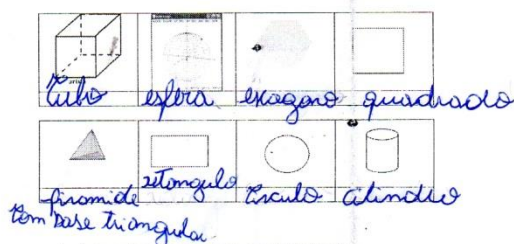 Cubo esfera exagono quadrado
piramide retangulo circulo cilindro
com base triangular